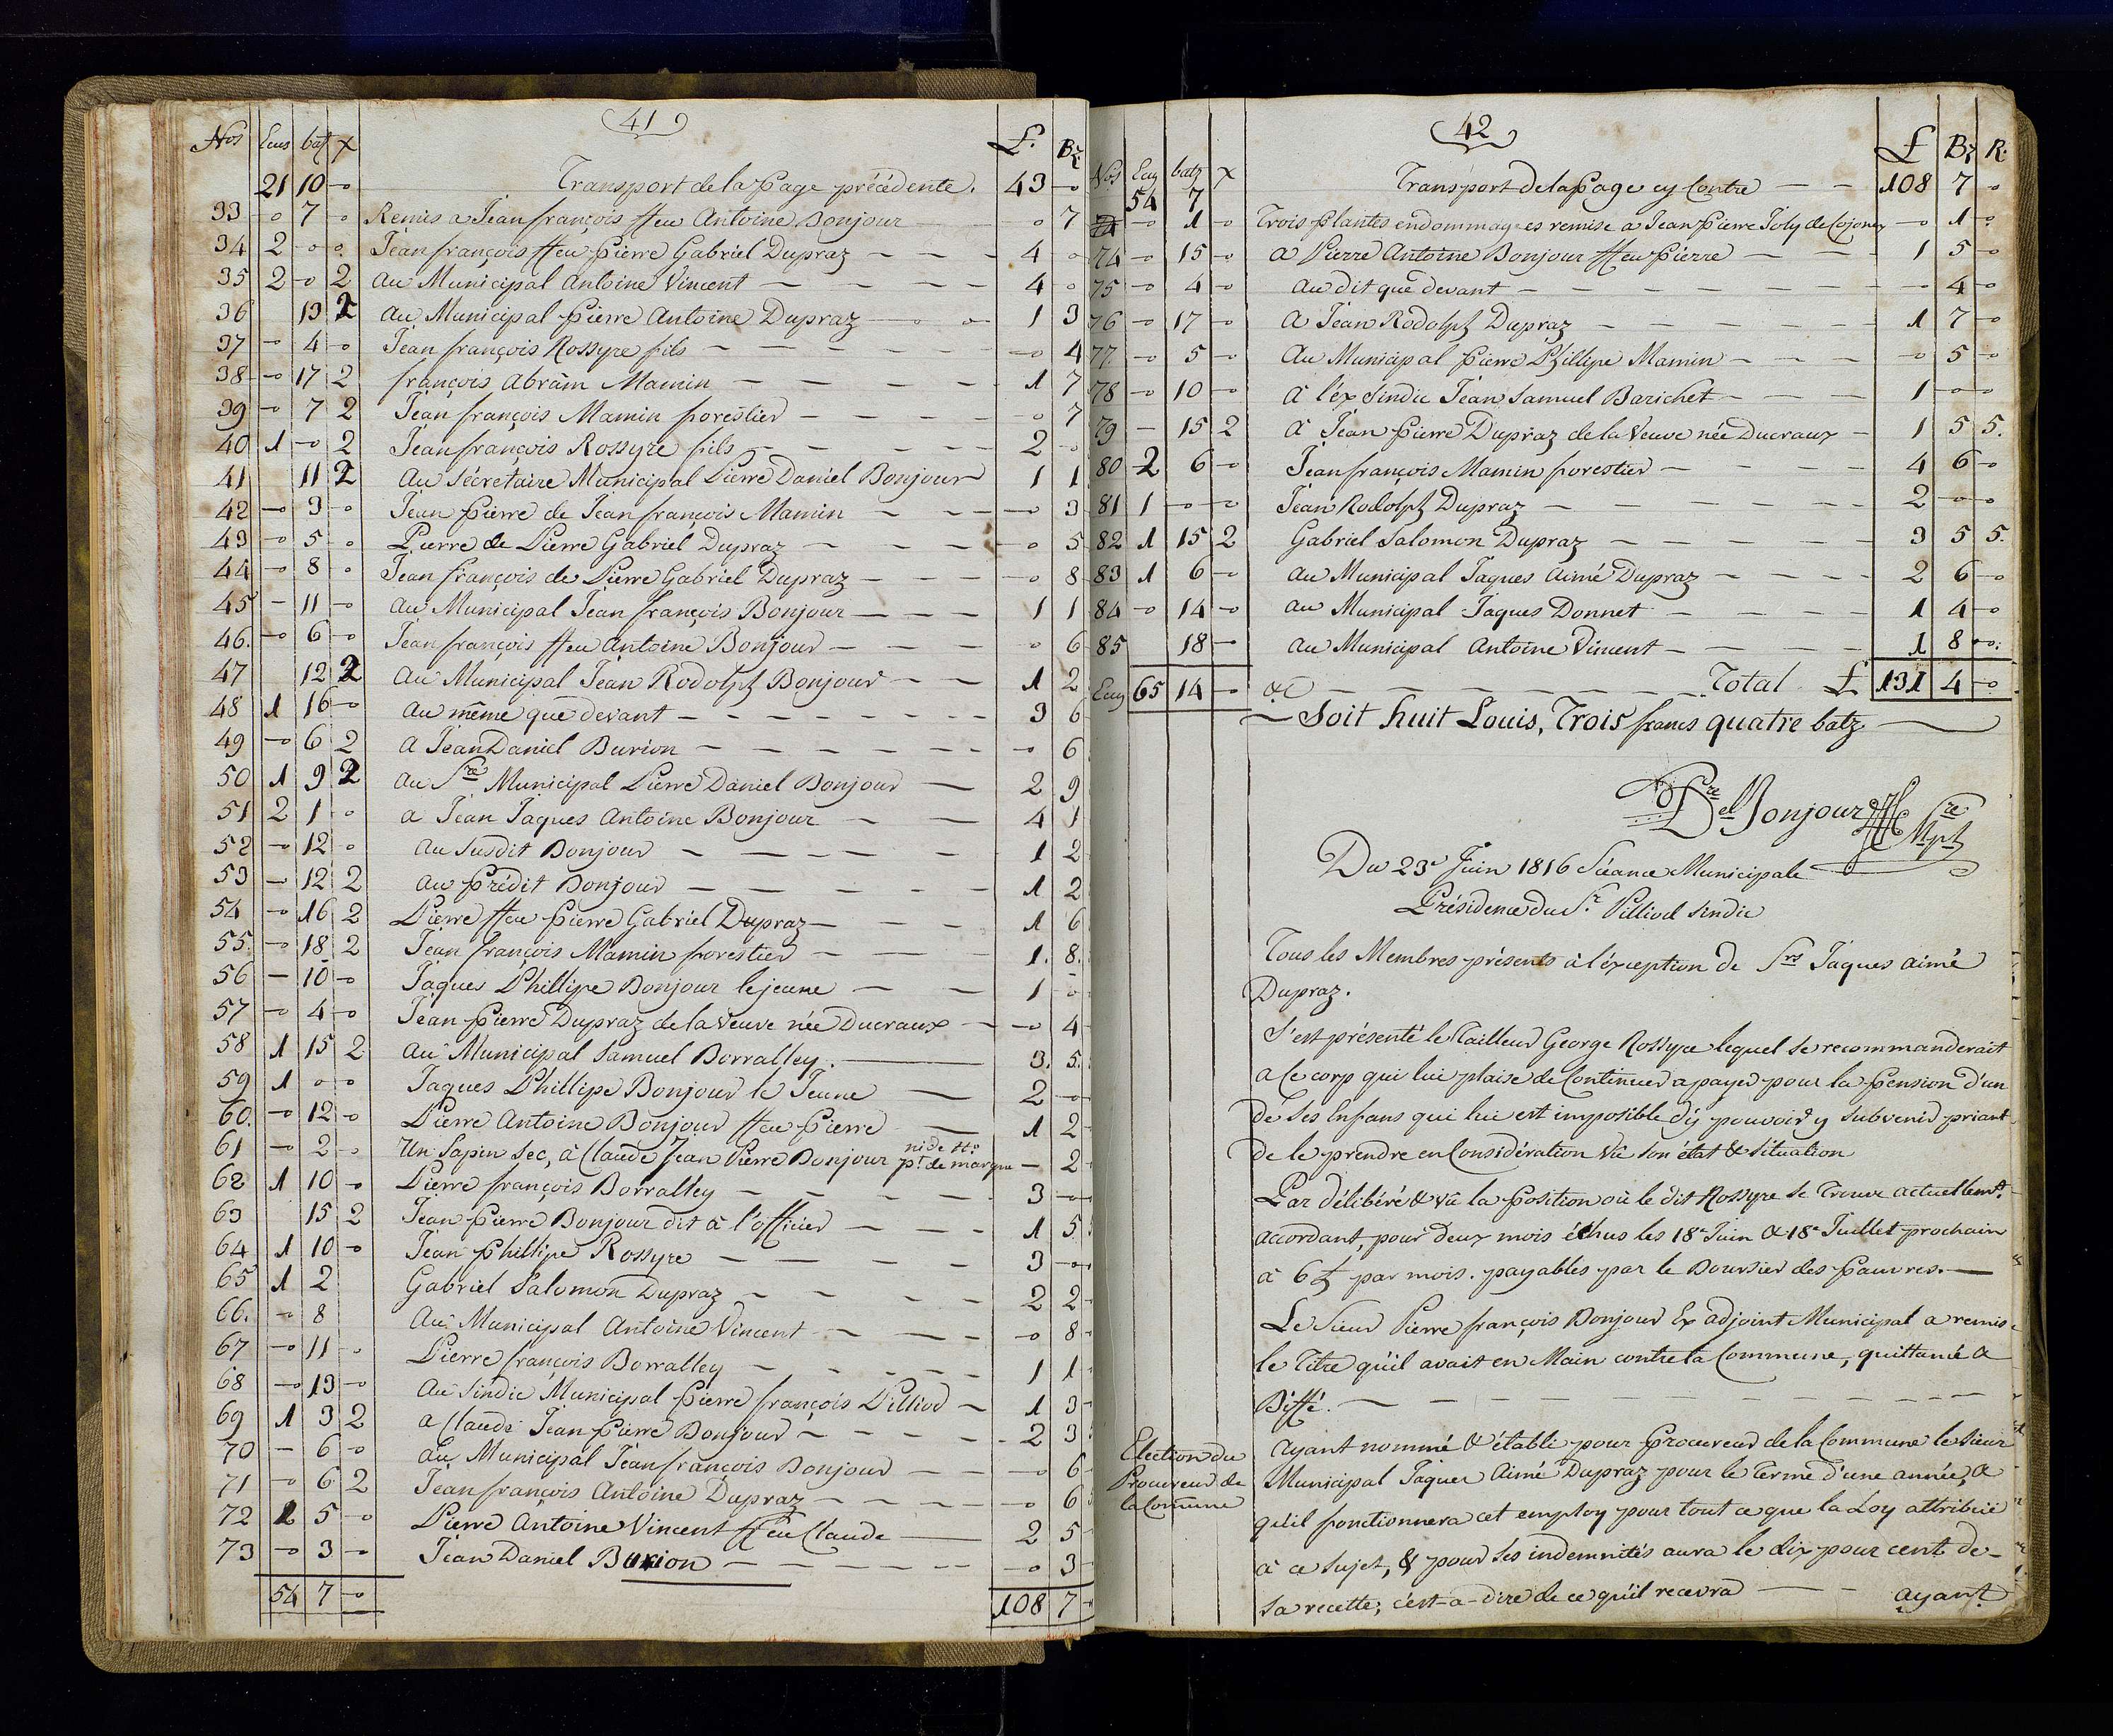 41
Nos Ecus batz x £. Bz
21 10 - Transport de la Page précédente. 43 -
33 - 7 - Remis a Jean françois ffeu Antoine Bonjour - 7
34 2 - - Jean françois ffeu Pierre Gabriel Dupraz 4 -
35 2 - 2 au Municipal Antoine Vincent 4 -
36 13 2 au Municipal Pierre Antoine Dupraz 1 3
37 - 4 - Jean françois Rossyre fils - 4
38 - 17 2 françois Abram Mamin 1 7
39 - 7 2 Jean françois Mamin forestier - 7
40 1 - 2 Jean françois Rossyre fils 2 -
41 11 2 au Sécrétaire Municipal Pierre Daniel Bonjour 1 1
42 - 3 - Jean Pierre de Jean françois Mamin - 3
43 - 5 - Pierre de Pierre Gabriel Dupraz - 5
44 - 8 - Jean françois de Pierre Gabriel Dupraz - 8
45 - 11 - au Municipal Jean françois Bonjour 1 1
46. - 6 - Jean françois ffeu Antoine Bonjour - 6
47 12 2 au Municipal Jean Rodolph Bonjour 1 2
48 1 16 - au même que devant 3 6
49 - 6 2 a Jean Daniel Burion - 6
50 1 9 2 au Sre Municipal Pierre Daniel Bonjour 2 9
51 2 1 - a Jean Jaques Antoine Bonjour 4 1
52 - 12 - au Susdit Bonjour 1 2
53 - 12 2 au Prédit Bonjour 1 2
54 - 16 2 Pierre ffeu Pierre Gabriel Dupraz 1 6
55. - 18 2 Jean françois Mamin forestier 1. 8.
56 - 10 - Jaques Phillipe Bonjour le jeune 1 -
57 - 4 - Jean Pierre Dupraz de la Veuve née Ducraux - 4
58 1 15 2 au Municipal Samuel Borralley. 3. 5.
59 1 - - Jaques Phillipe Bonjour le Jeune 2 -
60. - 12 - Pierre Antoine Bonjour ffeu Pierre 1 2
61 - 2 - Un Sapin sec, à Claude Jean Pierre Bonjour ni de No pt. de marque - 2
62 1 10 - Pierre françois Borralley 3 -
63 15 2 Jean Pierre Bonjour dit à l'officier 1 5
64 1 10 - Jean Phillipe Rossyre 3 -
65 1 2 Gabriel Salomon Dupraz 2 2
66. - 8 Au Municipal Antoine Vincent - 8
67 - 11 - Pierre françois Borralley 1 1
68 - 13 - Au Sindic Municipal Pierre françois Pilliod 1 3
69 1 3 2 a Claude Jean Pierre Bonjour 2 3
70 - 6 - au Municipal Jean françois Bonjour - 6
71 - 6 2 Jean françois Antoine Dupraz - 6
72 1 5 - Pierre Antoine Vincent ffeu Claude 2 5
73 - 3 - Jean Daniel Burion - 3
54 7 - 108 7
42
Nos Ecuz batz x £ Bz R:
54 7 Transport de la Page cy Contre 108 7 -
- 1 - Trois Plantes endommagées remise a Jean Pierre Joly de - 1 -
74 - 15 - a Pierre Antoine Bonjour ffeu Pierre 1 5 -
75 - 4 - au dit que devant - 4 -
76 - 17 - A Jean Rodolph Dupraz 1 7 -
77. - 5 - Au Municipal Pierre Phillipe Mamin - 5 -
78 - 10 - à l'éx Sindic Jean Samuel Barichet 1 - -
79 - 15 2 à Jean Pierre Dupraz de la Veuve née Ducraux 1 5 5.
80 2 6 - Jean françois Mamin forestier 4 6 -
81 1 - - Jean Rodolph Dupraz 2 - -
82 1 15 2 Gabriel Salomon Dupraz 3 5 5.
83 1 6 - au Municipal Jaques Aimé Dupraz 2 6 -
84 - 14 - au Municipal Jaques Donnet 1 4 -
85 18 - au Municipal Antoine Vincent 1 8 -
Ecuz 65 14 - &c Total £ 131 4 -
Soit huit Louis, Trois francs quatre batz
Pre Del Bonjour Sre Mpl
Du 23e Juin 1816 Séance Municipale
Présidence du Sr. Pilliod Sindic
Tous les Membres présents à l'éxception de Srs Jaques aimé
Dupraz.
S'est présenté le Tailleur George Rossyre lequel se recommanderait
a ce corp qui lui plaise de Continuer a payer pour la Pension d'un
de ses Enfans qui lui est imposible d'ÿ pouvoir y subvenir priant
de le prendre en Considération vû son état & situation
Par délibéré & vû la Position où le dit Rossyre se Trouve actuellemt.
accordant, pour deux mois échus les 18e Juin & 18e Juillet prochain
à 6 £ par mois. payables par le Boursier des Pauvres.
Le Sieur Pierre françois Bonjour Ex adjoint Municipal a remis
le Titre qu'il avait en Main contre la Commune, quittancé &
Biffé.
Election du
Procureur de
la Commune
Ayant nommé & établi pour Procureur de la Commune le Sieur
Municipal Jaques Aimé Dupraz pour le Terme d'une année, &
qu'il fonctionnera cet employ pour tout ce que la Loy attribuë
à ce sujet, & pour ses indemnités aura le dix pour cent de
sa recette; c'est-a-dire de ce qu'il recevra
ayant